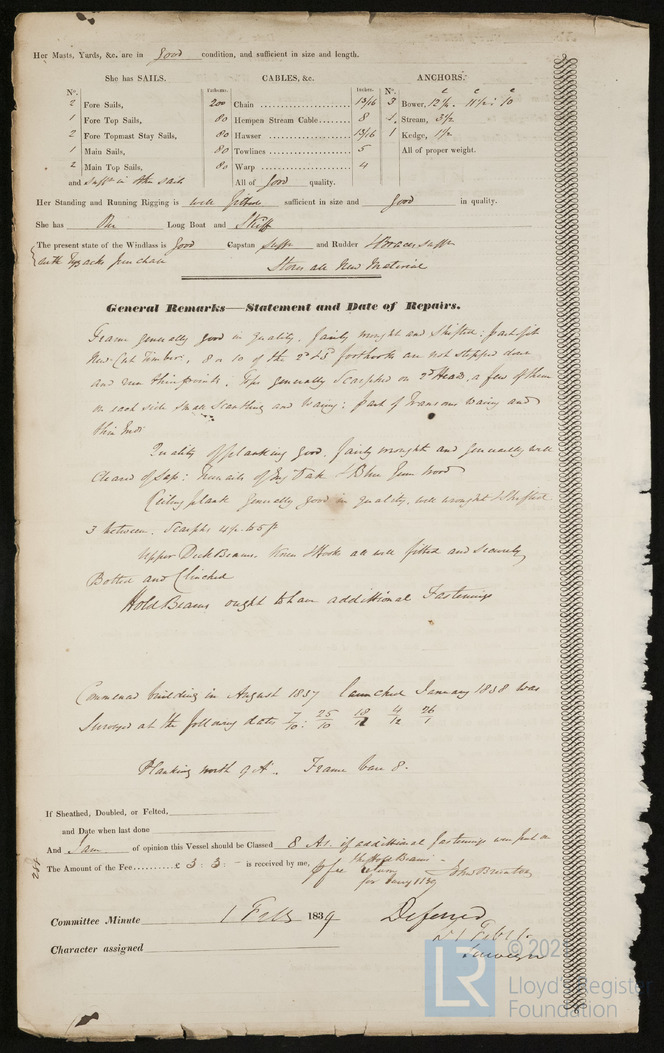 Her Masts, Yards, &c. are in good condition, and sufficient in size and length.
She has SAILS. CABLES, &c. ANCHORS.
No. Fathoms. Inches. No.
2 Fore Sails, 200 Chain 13/16 3 Bower, 12½. 11½: 10
1 Fore Top Sails, 80 Hempen Stream Cable 8 1. Stream, 3½
2 Fore Topmast Stay Sails, 80 Hawser 13/16 1 Kedge, 1½
1 Main Sails, 80 Towlines 5 All of proper weight.
2 Main Top Sails, 80 Warp 4
and sufft in other sails All of good quality.
Her Standing and Running Rigging is well fitted sufficient in size and good in quality.
She has One Long Boat and Skiff
The present state of the Windlass is good Capstan suffn and Rudder & Braces suffn
with chain
Stores all New Material
General Remarks—Statement and Date of Repairs.
Frame generally good in quality, fairly wrought and shifted: part
New Cut Timber, 8 or 10 of the 2d & 3d foothooks are not stepped
and run thin points. Tops generally Scarphed on 2d Heads, a few of them
on each side small scantling and waney: part of Transoms waney and
thin
Quality of planking good, fairly wrought and generally well
Cleared of Sap: Treenails of Oak & Blue Gum wood
Ceiling plank generally good in quality, well wrought & shifted
3 between. Scarphs 4 ft to 5 ft
Upper Deck Beams & Hooks all well fitted and securely
Bolted and Clinched
Hold Beams ought to have additional Fastenings
Commenced building in August 1837 launched January 1838 was
Surveyed at the following dates 7/10: 25/10 18/12 4/12 26/1
Planking worth 9 A. Frame bare 8.
If Sheathed, Doubled, or Felted,
and Date when last done
And I am of opinion this Vessel should be Classed 8 A1. if additional fastenings were put in
the Hold Beams
The Amount of the Fee £ 3: 3: – is received by me,
return
for 1139
284
Committee Minute 1 Feby 1839 Deferred
1 Feby
Surveyor
Character assigned
LR
© 202
Lloyd's Register
Foundation